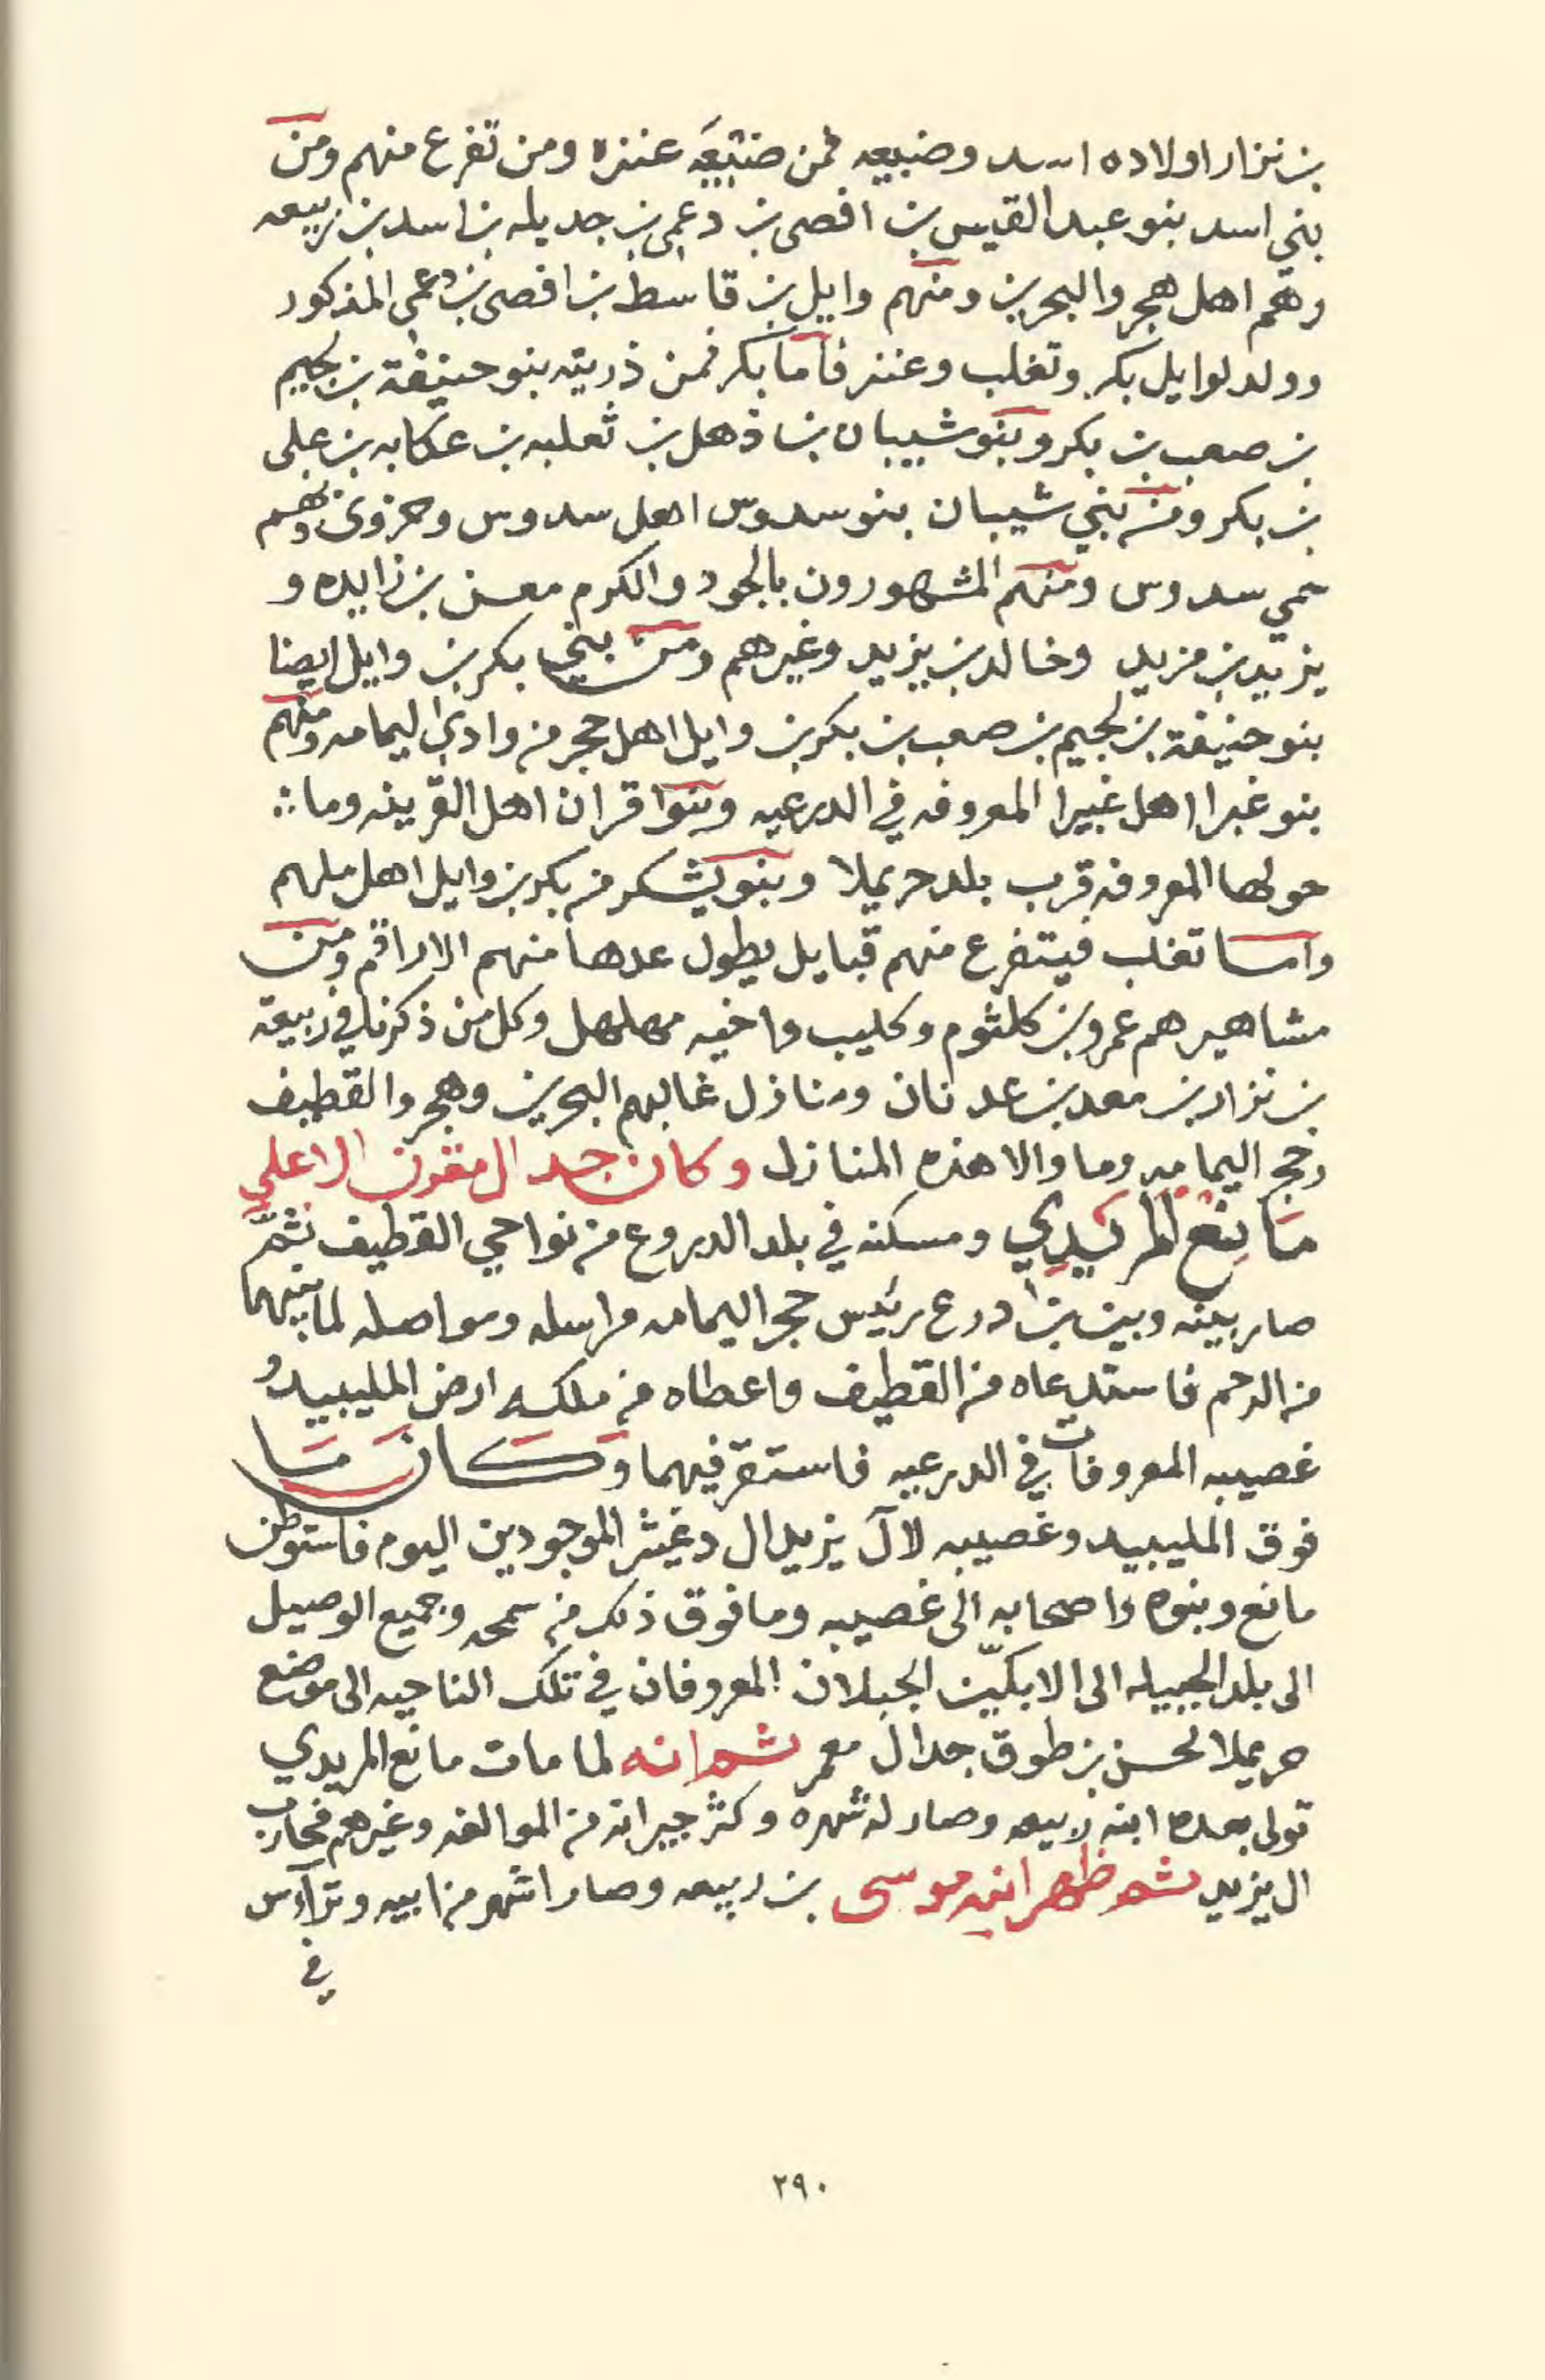 بن نزار اولاده اسد وضبيعه فمن ضبيعه عنزه ومن تفرع منهم ومن
بني اسد بنو عبد القيس بن افصى بن دعمي بن جديله بن اسد بن ربيعه
وهم اهل هجر والبحرين ومنهم وايل بن قاسط بن افصى بن دعمي المذكور
وولد لوايل بكر وتغلب وعنز فاما بكر فمن ذريته بنو حنيفة بن لجيم
بن صعب بن بكر وبنو شيبان بن ذهل بن ثعلبه بن عكابه بن علي
بن بكر ومن بني شيبان بنو سدوس اهل سدوس وحزوى وهم
حمي سدوس ومنهم المشهورون بالجود والكرم معن بن زايده و
يزيد بن مزيد وخالد بن يزيد وغيرهم ومن بني بكر بن وايل ايضا
بنو حنيفة بن لجيم بن صعب بن بكر بن وايل اهل حجر من وادي اليمامه ومنهم
بنو غبرا اهل غبيرا المعروفه في الدرعيه وبنوا قران اهل القرينه وما
حولها المعروفه قرب بلد حريملا وبنو يشكر من بكر بن وايل اهل ملهم
واما تغلب فيتفرع منهم قبايل يطول عدها منهم الاراقم ومن
مشاهيرهم عمرو بن كلثوم وكليب واخيه مهلهل وكل من ذكرنا في ربيعة
بن نزار بن معد بن عدنان ومنازل غالبهم البحرين وهجر والقطيف
وحجر اليمامه وما والا هذه المنازل وكان جد ال مقرن الاعلى
مانع المريدي ومسكنه في بلد الدروع من نواحي القطيف ثم
صار بينه وبين بن درع رئيس حجر اليمامه مراسله ومواصله لما بينهما
من الرحم فاستدعاه من القطيف واعطاه من ملكه ارض المليبيد و
غصيبه المعروفات في الدرعيه فاستقر فيهما وكان ما
فوق المليبيد وغصيبه لآل يزيد ال دغيثر الموجودين اليوم فاستوطن
مانع وبنوه واصحابه الى غصيبه وما فوق ذلك من سمحه وجميع الوصيل
الى بلد الجبيله الى الابكين الجبلان المعروفان في تلك الناحيه الى موضع
حريملا لحسن بن طوق جد ال معمر ثم انه لما مات مانع المريدي
تولى بعده ابنه ربيعه وصار له شهره وكثر جيرانه من الموالفه وغيرهم فحارب
ال يزيد ثم ظهر ابنه موسى بن ربيعه وصار اشهر من ابيه وترآس
في
٢٩٠